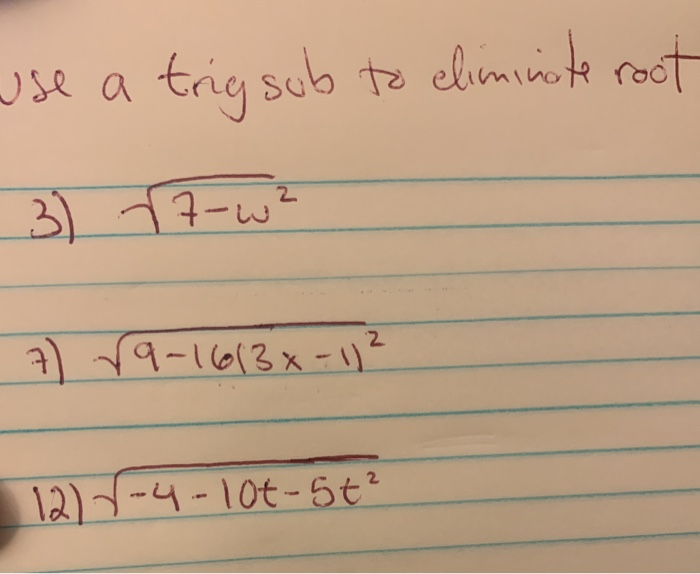 use a trig sub to eliminate root
3) √7-w²
7) √9-16(3x-1)²
12) √-4-10t-5t²